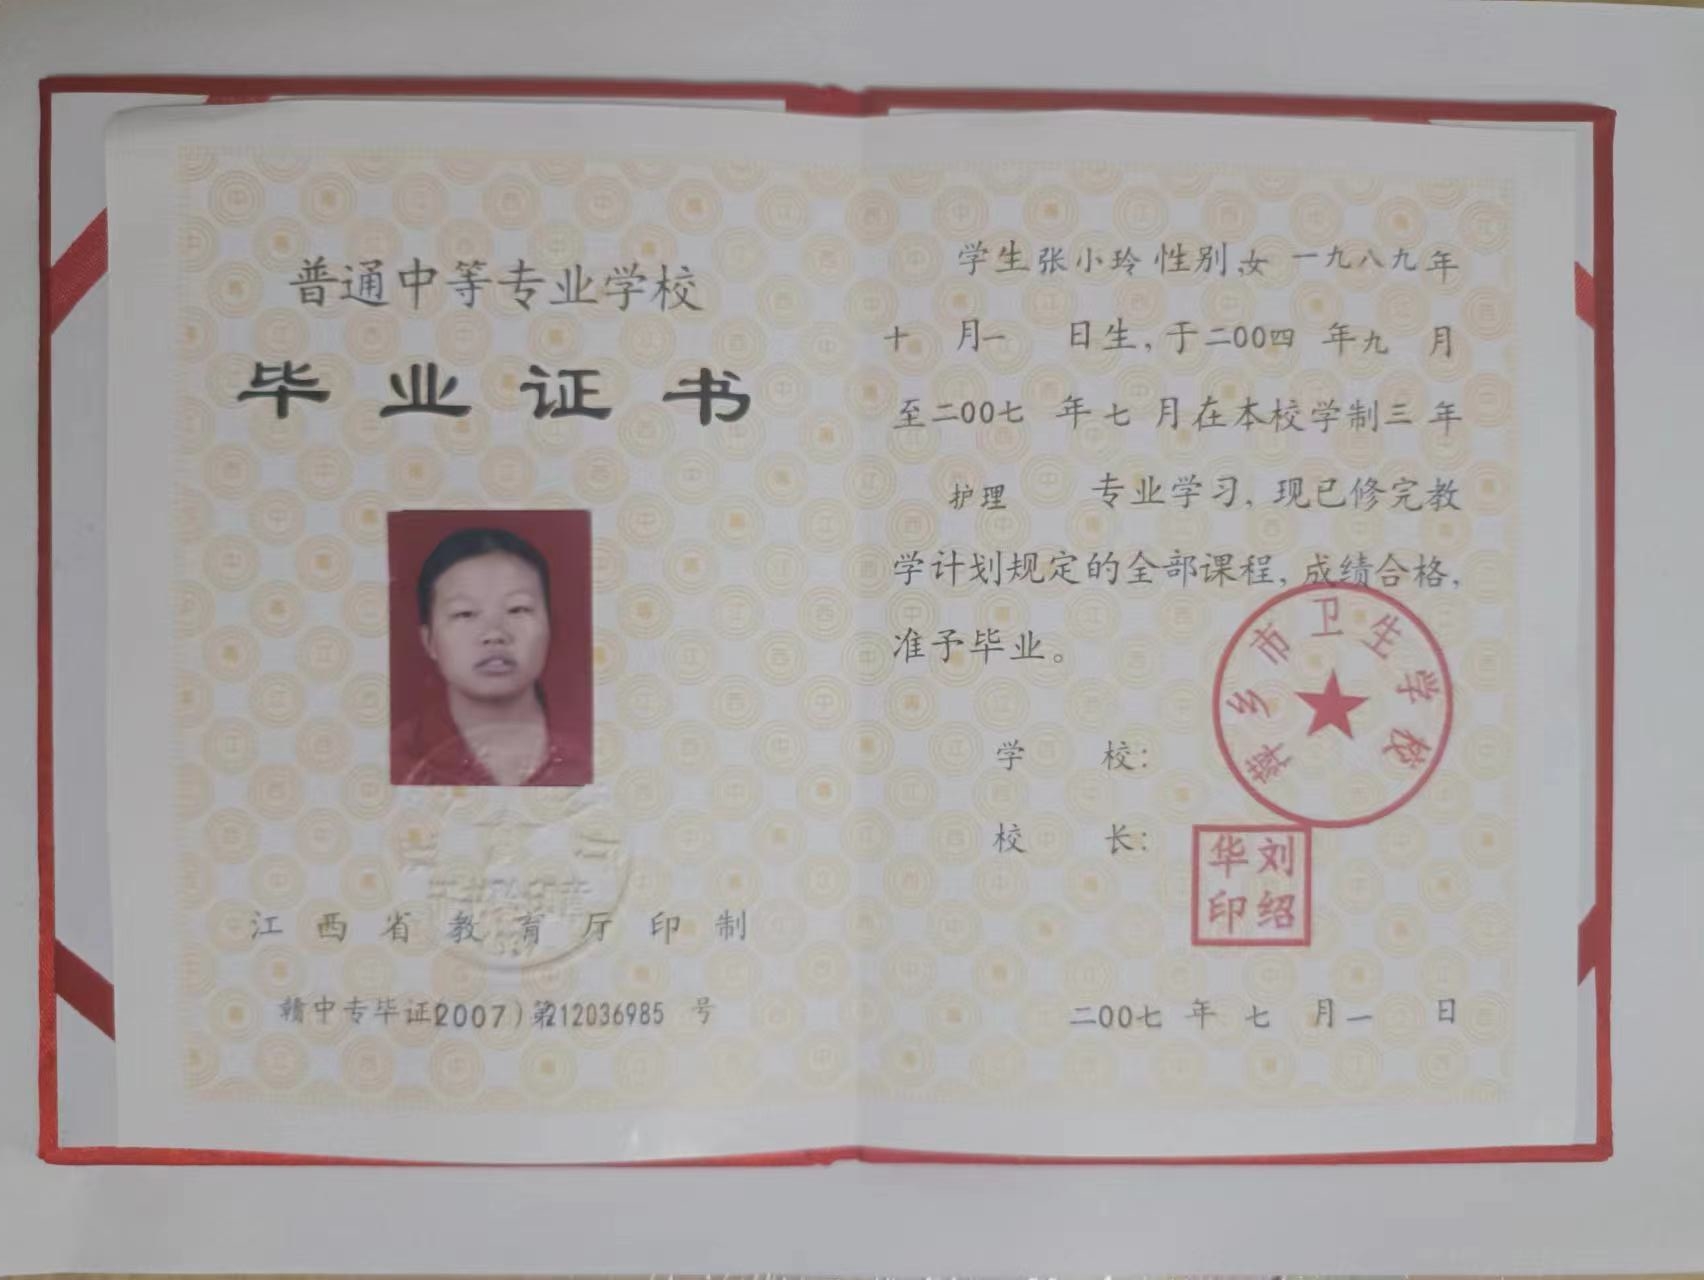 普通中等专业学校
毕业证书
江西省教育厅印制
赣中专毕证(2007)第212036985 号
学生张小玲 性别 女 一九八九年
十 月一 日生, 于二00四 年九 月
至二00七 年七 月在本校学制三年
护理 专业学习, 现已修完教
学计划规定的全部课程, 成绩合格,
准予毕业。
学 校:
萍乡市卫生学校
校 长:
刘绍华印
二00七 年 七 月一 日